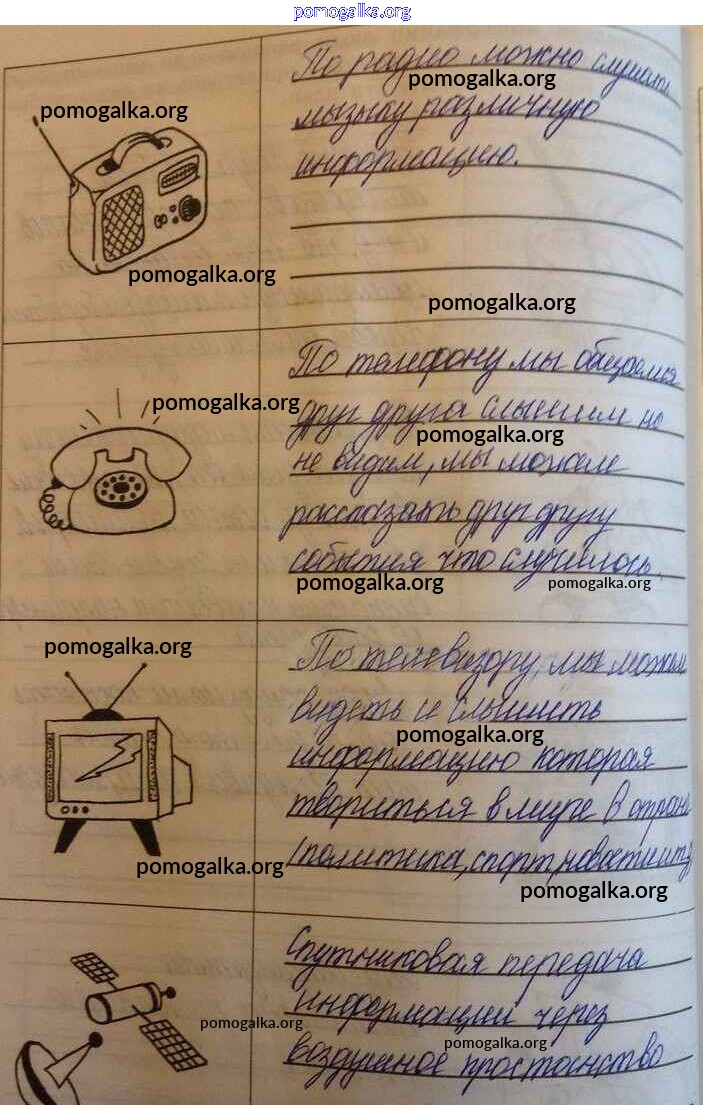 pomogalka.org
По радио можно слушать
pomogalka.org
pomogalka.org
мызыку различную
информацию.
pomogalka.org
pomogalka.org
По телефону мы общаемся
pomogalka.org
друг друга слышим но
pomogalka.org
не видим, мы можем
рассказать друг другу
события что случилось.
pomogalka.org
pomogalka.org
По телевизору, мы можем
pomogalka.org
видеть и слышить
pomogalka.org
информацию которая
твориться в мире В стране
(политика, спорт, новости итд
pomogalka.org
pomogalka.org
Спутниковая передача
информации через
pomogalka.org
pomogalka.org
воздушное простоанство